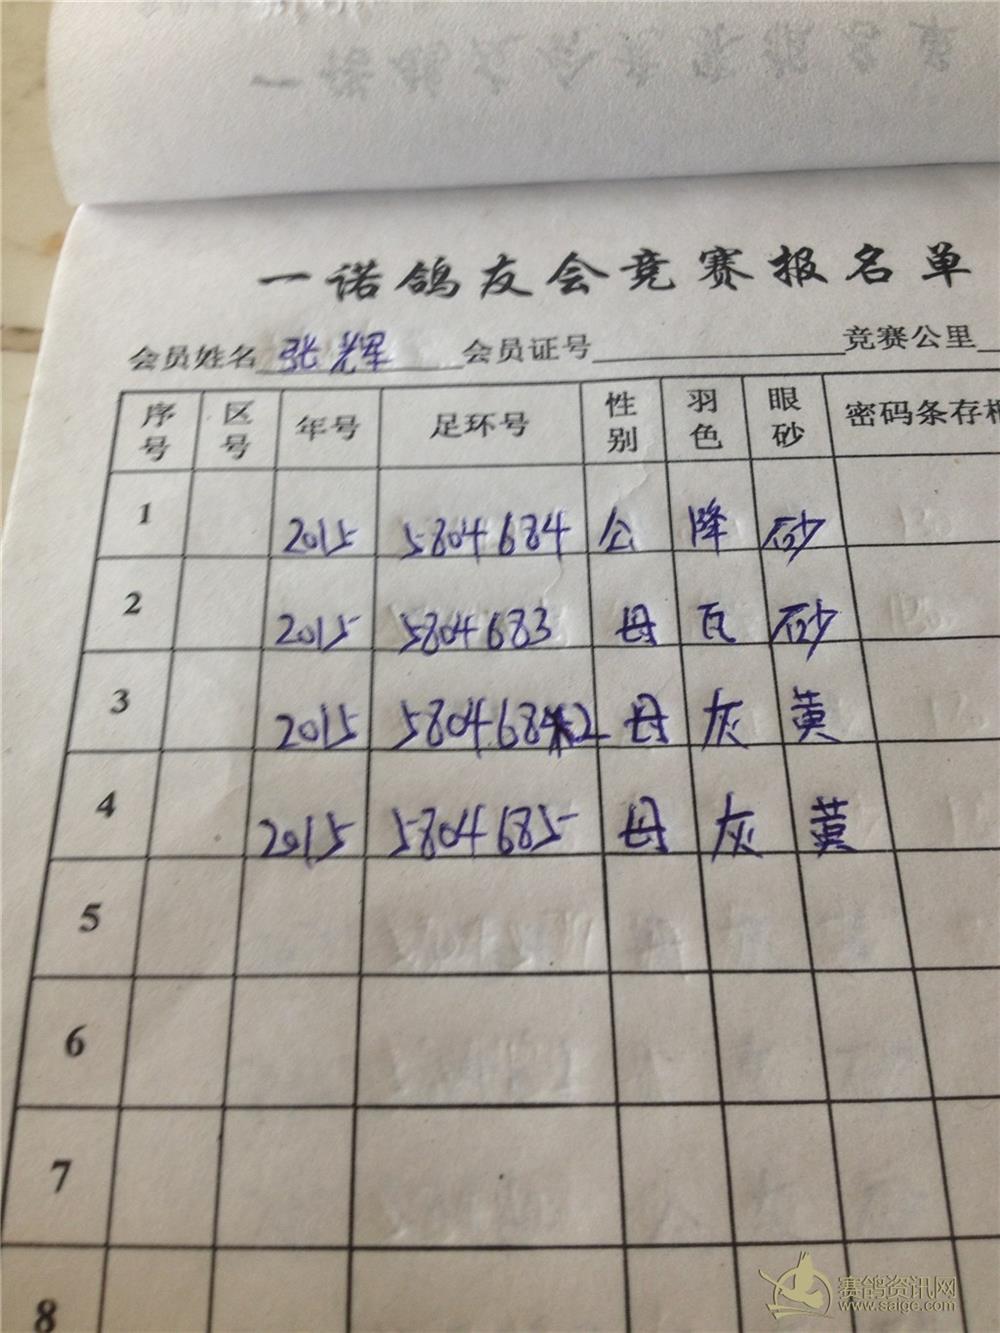 一诺鸽友会竞赛报名单
会员姓名 张辉 会员证号 竞赛公里
序号 区号 年号 足环号 性别 羽色 眼砂 密码条存根
1 2015 5804684 公 降 砂
2 2015 5804683 母 瓦 砂
3 2015 580468 2 母 灰 黄
4 2015 5804685 母 灰 黄
5
6
7
8
赛鸽资讯网
www.saige.com